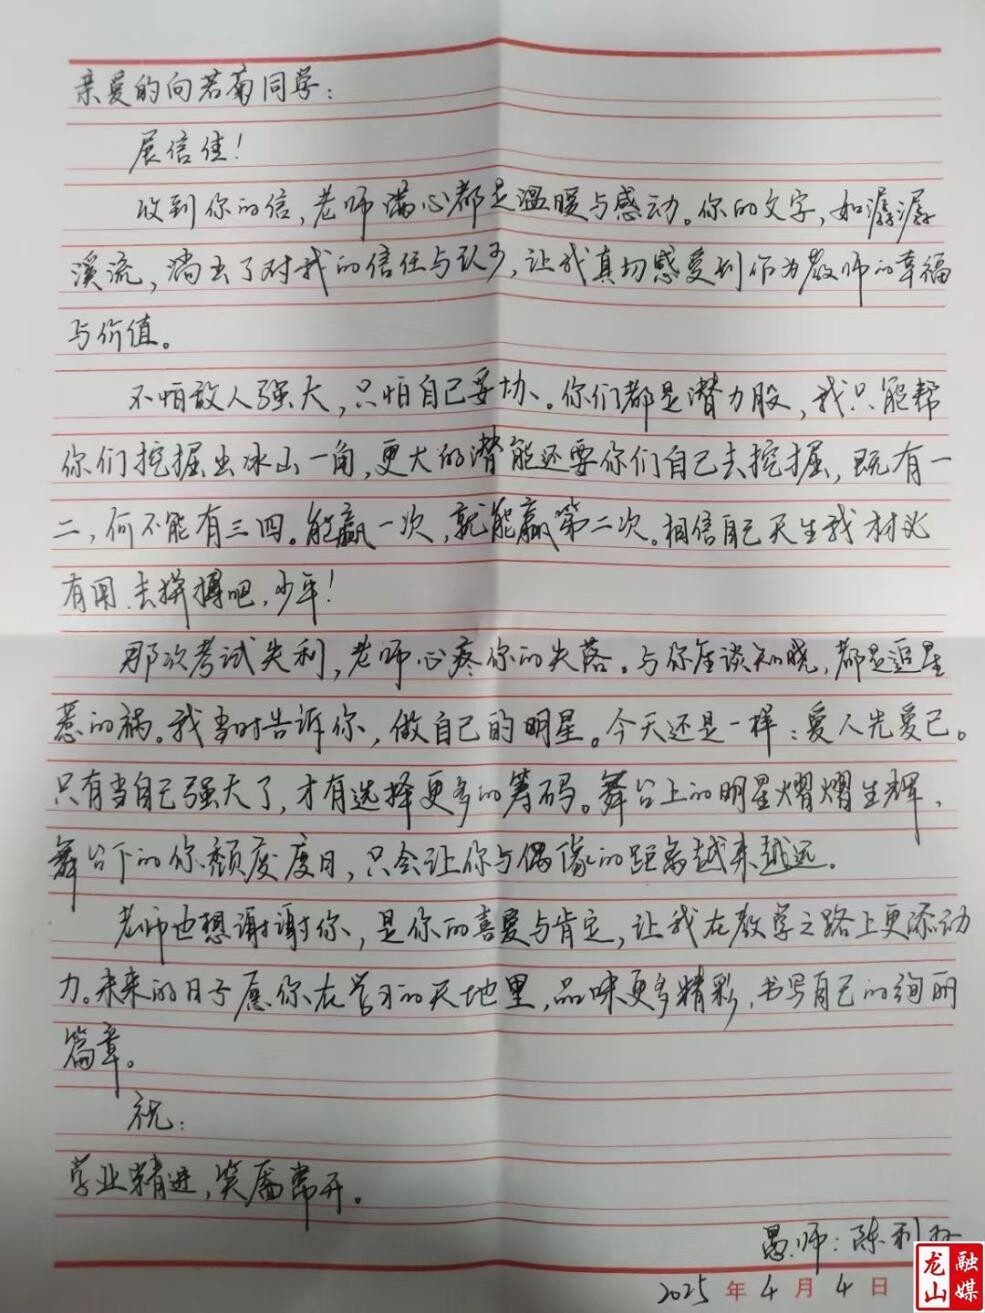 亲爱的向若菊同学：
展信佳！
收到你的信，老师满心都是温暖与感动。你的文字，如潺潺
溪流，淌出了对我的信任与认可，让我真切感受到作为教师的幸福
与价值。
不怕敌人强大，只怕自己妥协。你们都是潜力股，我只能帮
你们挖掘出冰山一角，更大的潜能还要你们自己去挖掘，既有一
二，何不能有三四。能赢一次，就能赢第二次。相信自己天生我材必
有用，去拼搏吧，少年！
那次考试失利，老师心疼你的失落。与你座谈知晓，都是追星
惹的祸。我当时告诉你，做自己的明星。今天还是一样：爱人先爱己。
只有当自己强大了，才有选择更多的筹码。舞台上的明星熠熠生辉，
舞台下的你颓废度日，只会让你与偶像的距离越来越远。
老师也想谢谢你，是你的喜爱与肯定，让我在教学之路上更添动
力。未来的日子愿你在学习的天地里，品味更多精彩，书写自己的绚丽
篇章。
祝：
学业精进，笑靥常开。
愚师：陈利
2025年4月4日
龙山融媒